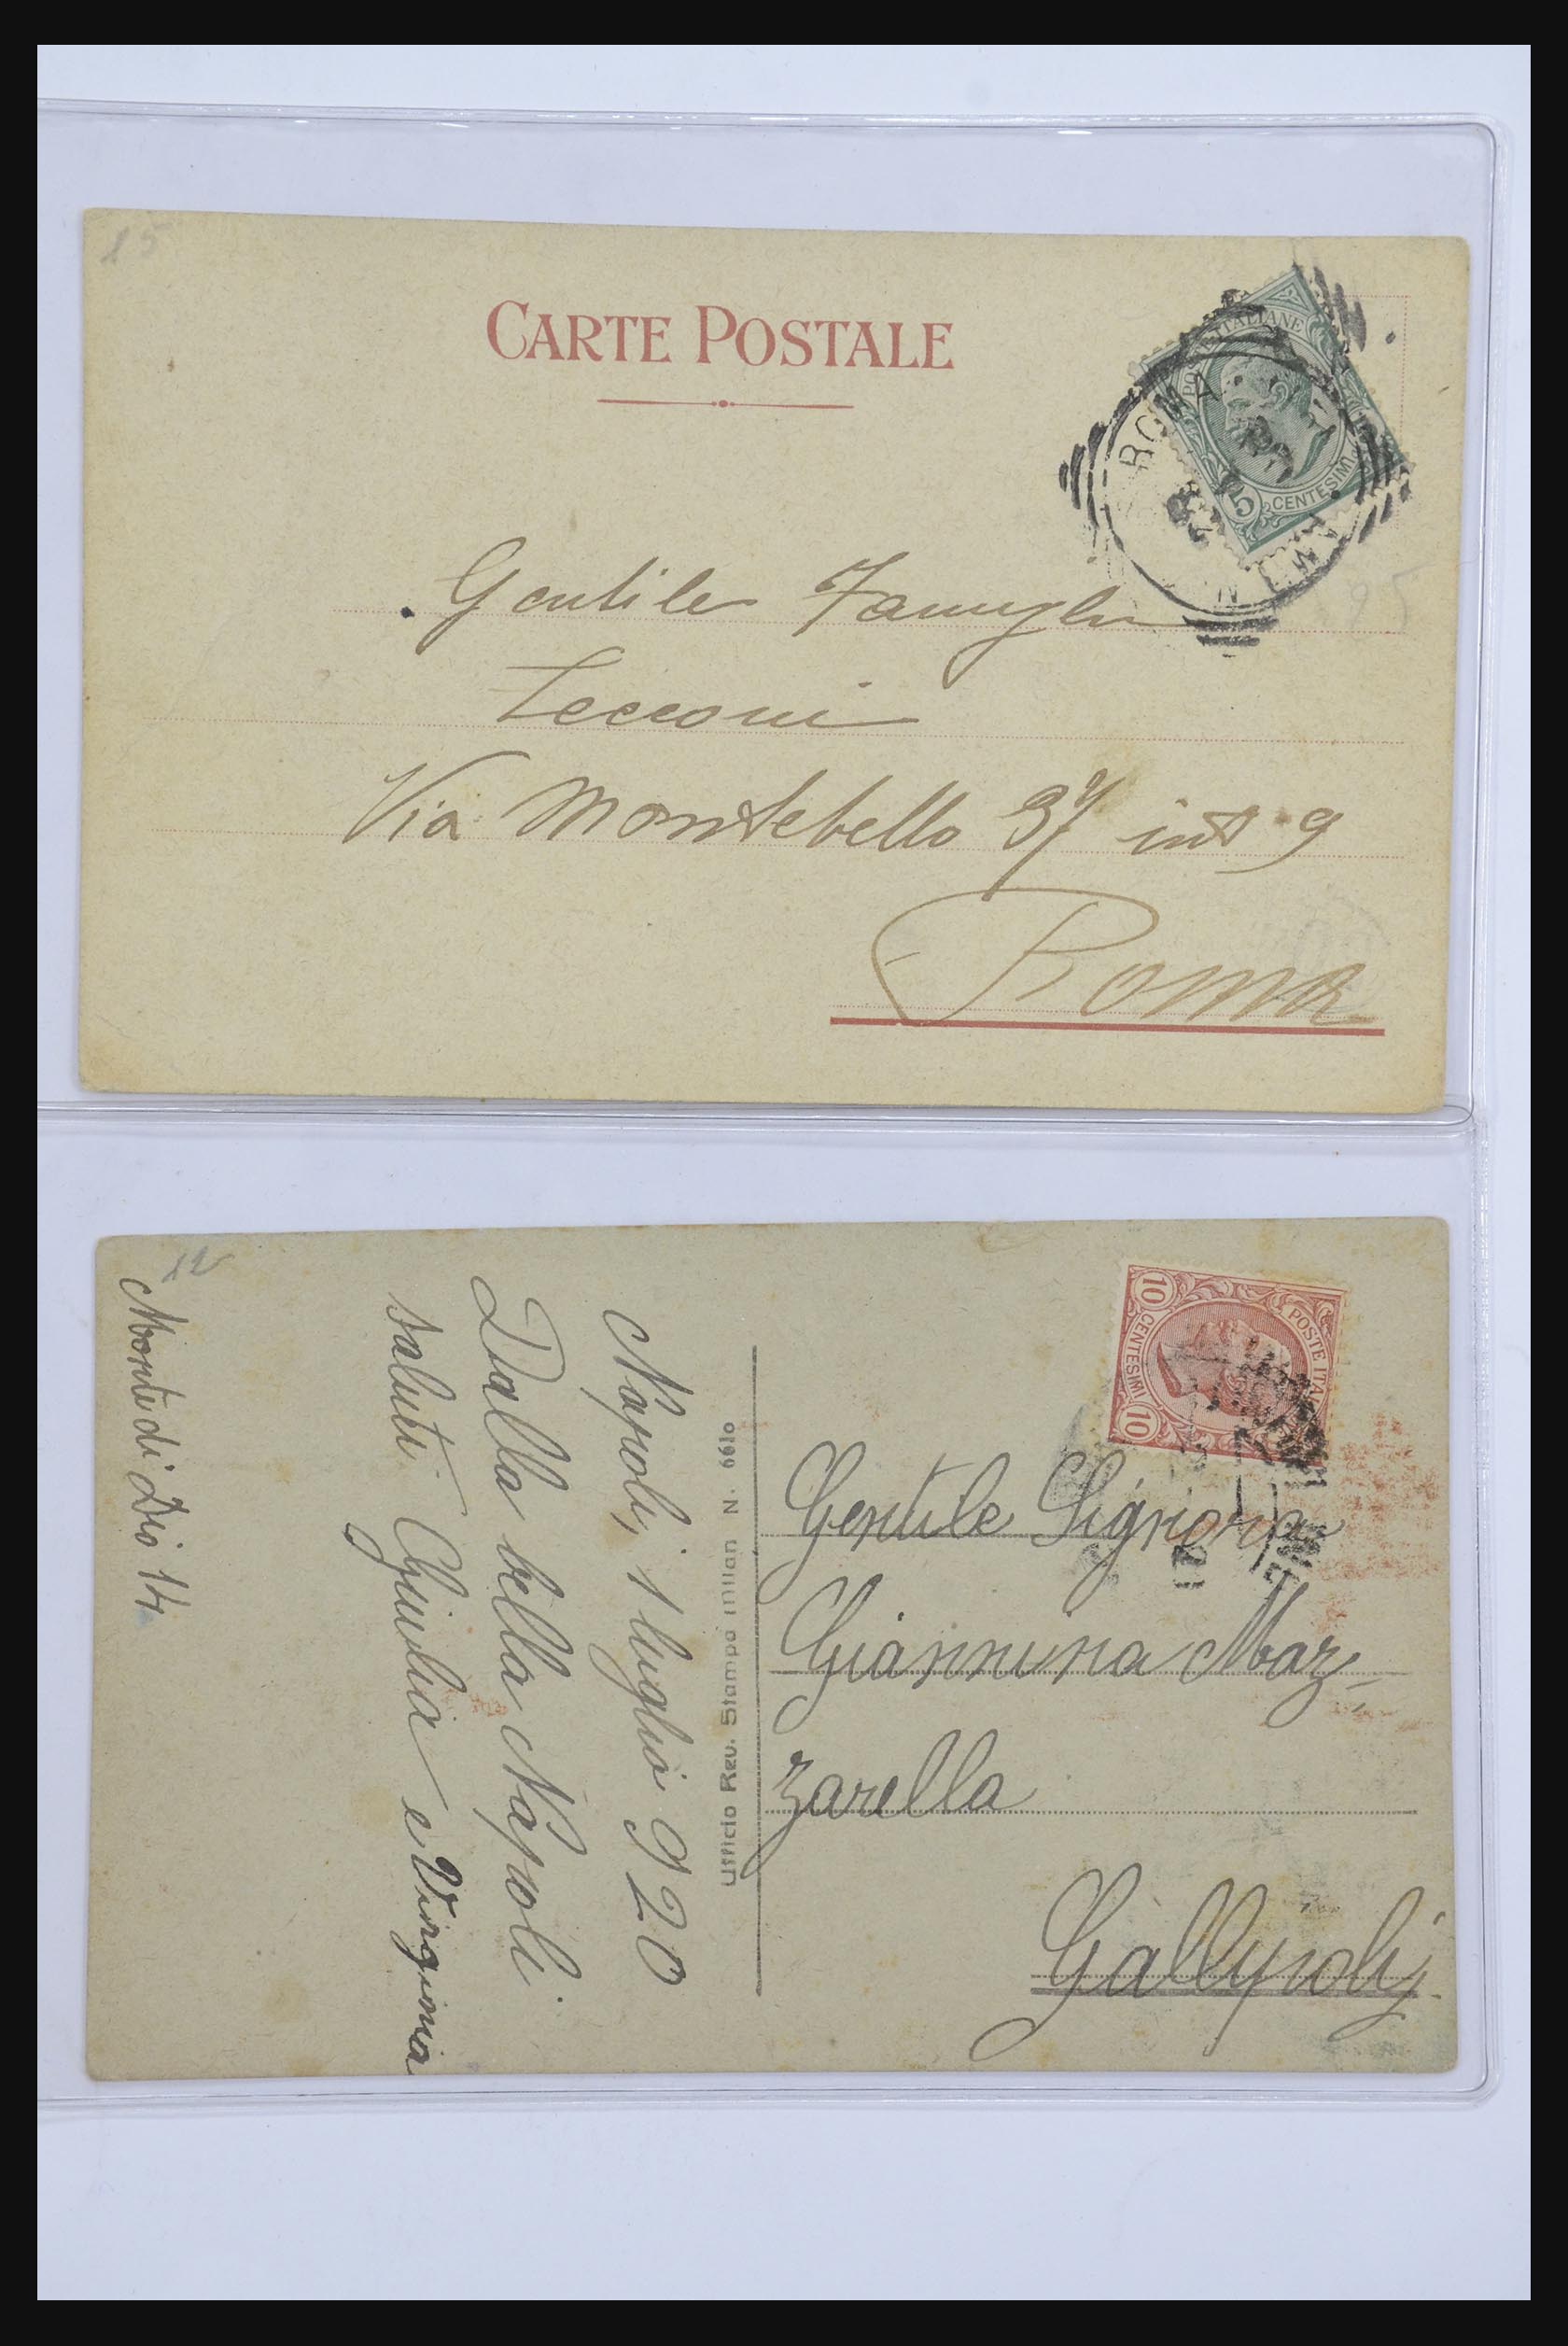 15
CARTE POSTALE
POSTE ITALIANE
5 CENTESIMI
ROMA
Gentile Famiglia
Cecconi
Via Montebello 37 int 9
Roma
95
12
10 CENTESIMI 10
POSTE ITA
Gentile Signora
Giannina Maz-
zarella
Gallipoli
Ufficio Rev. Stampa Milan N. 6610
Napoli, 1 luglio 920
Dalla bella Napoli.
saluti Giulia e Virginia
Monte di Dio 14